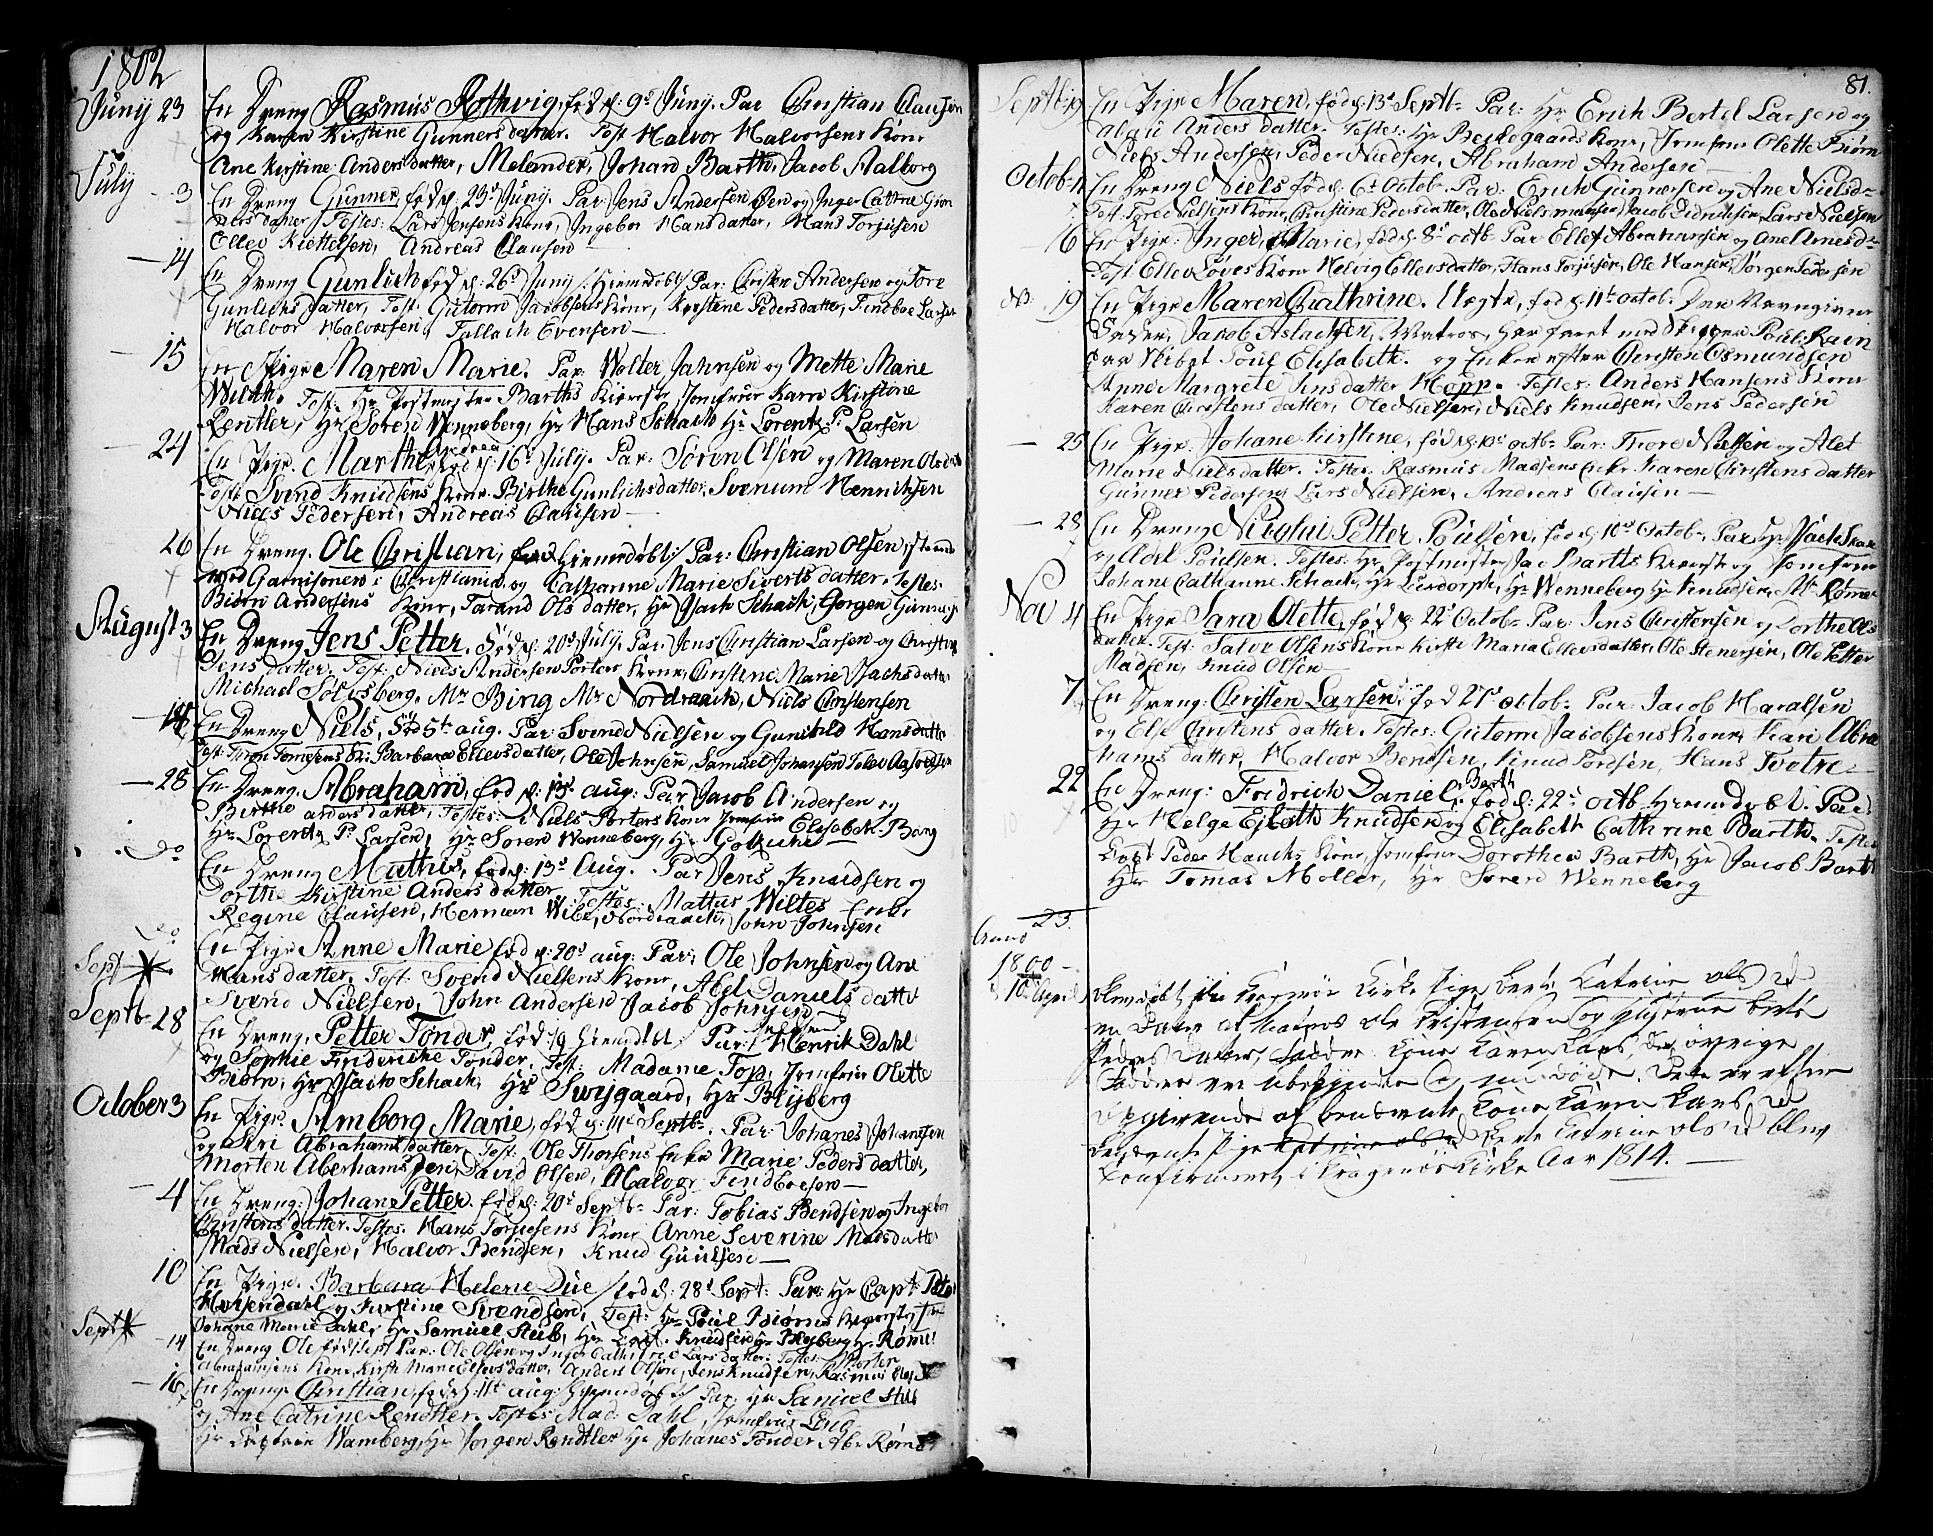 1802
Juny 23 En Dreng Rasmus Rothvig, fød d: 9d Juny. Par Christian Clausen
og Karen Kirstine Gunnersdatter. Test Halvor Halvorsens Kone
Ane Kirstine Andersdatter, Melander, Johan Barth, Jacob Aalborg
July 3 En Dreng Gunner fød d: 23d Juny. Par Jens Andersen og Inger Cathrne
dersdatter Testes: Lars Jensens Kone, Ingebor Hansdatter, Hans Torjusen
Ellev Kiettelsen, Andreas Clausen —
— 14 En Dreng Gunlich fød d: 26d Juny /: Hiemdøbt :/ Par: Christen Andersen og Tore
Gunlichs datter, Test: Gutorm Jacobsens Kone, Kirstene Pedersdatter, Findboe Larsen
Halvor Halvorsen, Tallach Evensen —
— 15 En Pige Maren Marie. Par: Wolter Jahnsen og Mette Marie
Wilth. Test: Hr Postmester Barths Kiereste, Jomfrue Karen Kirstine
Rentler, Hr Søren Wenneberg, Hr Hans Schack Hr Lorentz P. Larsen
— 24 En Pige. Marthe Andrea fød d: 16d July. Par: Søren Olsen og Maren Olsdatter
Test Svend Knudsens Kone Birthe Gunlichsdatter, Svenum Henrichsen
Niels Pedersen, Andreas Clausen —
26 En Dreng. Ole Christian, Hiemedøbt :/ Par: Christian Olsen,
ved Garnisonen i Christiania og Catharine Marie Sivertsdatter. Testes
Biørn Andersens Kone, Tarand Olsdatter, Hr Isach Schach, Jørgen Gunners
August 3 En Dreng Jens Petter. Fød d: 20d July. Par: Jens Christian Larsen og Christine
Jensdatter, Test: Niels Andersen Porters Kone, Christine Marie Isachsdatter
Michael Solvsberg, Mr Bing Mr Nordraach, Niels Christensen
— 14 En Dreng Niels, Fød 5t aug. Par: Svend Nielsen og Gunild Hansdatter
Test: Toren Tomesens K: Barbara Ellevsdatter, Ole Johnsen, Samuel Johansen Tolev
— 28 En Dreng. Abraham, fød d: 13d aug: Par Jacob Andersen og
Birthe andersdatter, Testes: Niels Porters Kone Jomfrue Elisabeth Borg
Hr Lorentz P: Larsen, Hr Søren Wenneberg, Hr
do En Dreng Mathis, fød d: 13d Aug. Par Jens Knudsen og
Dorthe Kirstine Andersdatter, Testes: Mattus Wiltes Enke
Regine Clausen, Herman Wibe, Nordraack, John Johnsen
do En Pige Anne Marie fød d: 20d aug: Par: Ole Johnsen og Ane
Sept Hansdatter, Test: Svend Nielsens Kone, Abel Danielsdatter
Svend Nielsen, John Andersen Jacob Johnsen
Septb 28 En Dreng. Petter Tonder, fød Hiemdøbt, Par: Henrik Dahl
og Sophie Frideriche Tonder. Test: Madame Top, Jomfrue Olette
Biørn, Hr Isach Schack, Hr Swygaard, Hr Blyberg
October 3 En Pige. Amborg Marie, fød d: 11d Septb, Par: Johanes Johansen
og Abrahamsdatter, Test: Ole Thorsens Enke Marie Pedersdatter,
Morten Aberhamsen, David Olsen, Halvor Findboesen —
— 4 En Dreng: Johan Petter. fød d: 20d Septb Par: Tobias Bendsen og Ingebor
Christensdatter. Testes: Hans Torjusens Kone Anne Severine Madsdatter
Mads Nielsen, Halvor Bendsen, Knud Gullsen —
10 En Pige. Barbara Helene Due fød d: 28d Sept: Par: Hr Capt: Peter
og Kirstine Svendsen, Test: Hr Poul Biørns
Johane Marie Dahl, Hr Samuel Stub, Hr Knudsen Hr Blyberg Hr Rømer
Sept 14 En Dreng Ole fød Sept Par: Ole Olsen og Inger Cathrine Larsdatter: Testes: Morten
Abrahamsens Kone, Kirsti Marie Ellevsdatter, Anders Olsen, Jens Knudsen, Rasmus Olsen
— 16 En Dreng. Christian, fød d: 11t aug: Hiemdøbt Par Hr Samuel Stub
og Ane Catrine Rendtler. Testes: Mad: Dahl, Jomfrue Lind
Hr Captein Wamberg, Hr Jørgen Rendtler Hr Johanes Tonder Ab: Rømer
81.
Septb: 19 En Pige Maren, fød d: 13d Septb Par: Hr Erich Bertel Larsen og
Andersdatter. Testes: Hr Beskegaards Kone, Jomfrue Olette Biørn
Niels Andersen, Peder Nielsen, Abraham Andersen —
Octob: 11 En Dreng Niels fød d: 6d Octob. Par: Erich Gunnersen og Ane Nielsd
Test. Tore Nielsens Kone, Christine Pedersdatter, Ole Jacob Didrichsen, Lars Nielsen
— 16 En Pige: Inger Marie, fød d: 8d octb Par Ellef Abrahamsen og Ane Arnesd
Test Ellev Løves Kone Helvig Ellevsdatter, Hans Torjusen, Ole Hansen, Jørgen Pedersen
NB. 19 En Pige Maren Chathrine. Uegte, fød d: 11t octob. Den
Fader, Jacob Aslachsen, Matros, har faret med Skipper Poul Kain
paa Skibet Poul Elisabeth. og Enken efter Christen Osmundsen
Anne Margrete Jensdatter Hopp. Testes: Anders Hansens Kone
Karen Christensdatter, Ole Nielsen, Niels Knudsen, Jens Pedersen
— 25 En Pige, Johane Kirstine, fød d: octb Par: Thore Nielsen og Alet
Marie Nielsdatter. Testes: Rasmus Madsens Enke Karen Christensdatter
Gunner Pedersen, Lars Nielsen, Andreas Clausen —
— 28 En Dreng Nicolai Petter Poulsen, fød d: 10d Octob, Par: Hr Isach
og Adel Poulsen. Testes: Hr Postmester Barths Kiereste og Jomfrue
Johane Cathrine Schack, Hr Leesdorph, Hr Wenneberg Hr Knudsen, Mr Rømer
Nov 4 En Pige Sara Olette, fød d: 22d Octob Par: Jens Christensen og Dorthe Ols
datter. Test: Salve Olsens Kone Kirste Maria Ellevsdatter, Ole Stenersen, Ole Petter
Madsen, Knud Olsen —
7 En Dreng: Christen Larsen, fød 21d octob Par: Jacob Haralsen
og Else Christensdatter. Testes: Gutorm Jacobsens Kone, Kari Abra
hams datter, Halvor Bentsen, Knud Tordsen, Hans Tvetre
22 En Dreng: Fredrich Daniel Barth, fød d: 22d octb Hiemdøbt. Par:
Hr Helge Eiloth Knudsen og Elisabeth Cathrine Barth. Testes
Capt Peder Hauchs Kone, Jomfrue Dorothea Barth, Hr Jacob Barth
Hr Tomas Moller, Hr Søren Wenneberg
23.
Anno
1800
d 10 April blev døbt i Kragerøe Kirke Pige Berte Katrine olsd
en Datter af Matros ole Kristensen og Hustrue Berte
Peders Datter, Faddere: Kone Karen Lars, de øvrige
Faddere ere ubekjendte og døde. Dette er efter
Opgivende af benævnte Kone Karen Lars,
Pige Katrine olsd Berte Catrine olsd blev
Confirmeret i Kragerøs Kirke Aar 1814. —